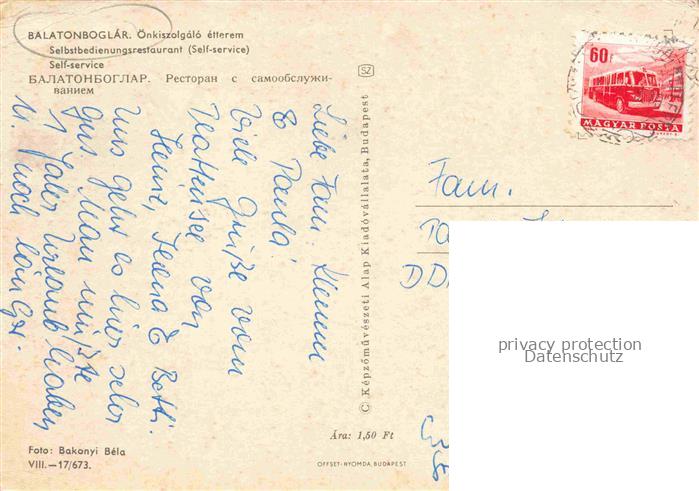 BALATONBOGLÁR. Önkiszolgáló étterem
Selbstbedienungsrestaurant (Self-service)
Self-service
БАЛАТОНБОГЛАР. Ресторан с самообслужи-
ванием
SZ
60f
MAGYAR POSTA
Liebe Fam.
& Paula!
Viele Grüße vom
Plattensee von
Heinz, & Betti.
Uns geht es hier sehr
gut. Man müßte
1 Jahr Urlaub haben
u. noch länger.
© Képzőművészeti Alap Kiadóvállalata, Budapest
Fam.
privacy protection
Datenschutz
Ára: 1,50 Ft
Foto: Bakonyi Béla
VIII.—17/673.
OFFSET-NYOMDA, BUDAPEST